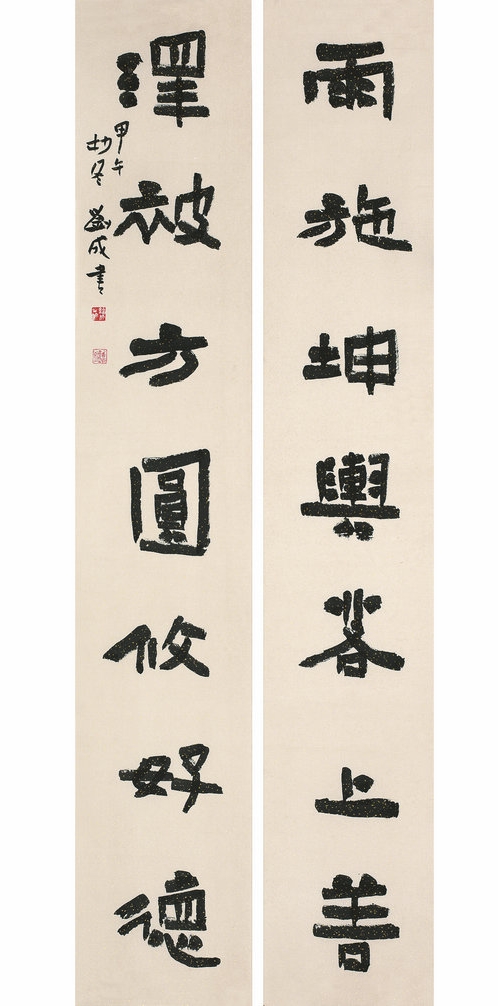 雨施坤輿若上善
澤被方圓攸好德
甲午
初冬劉成書